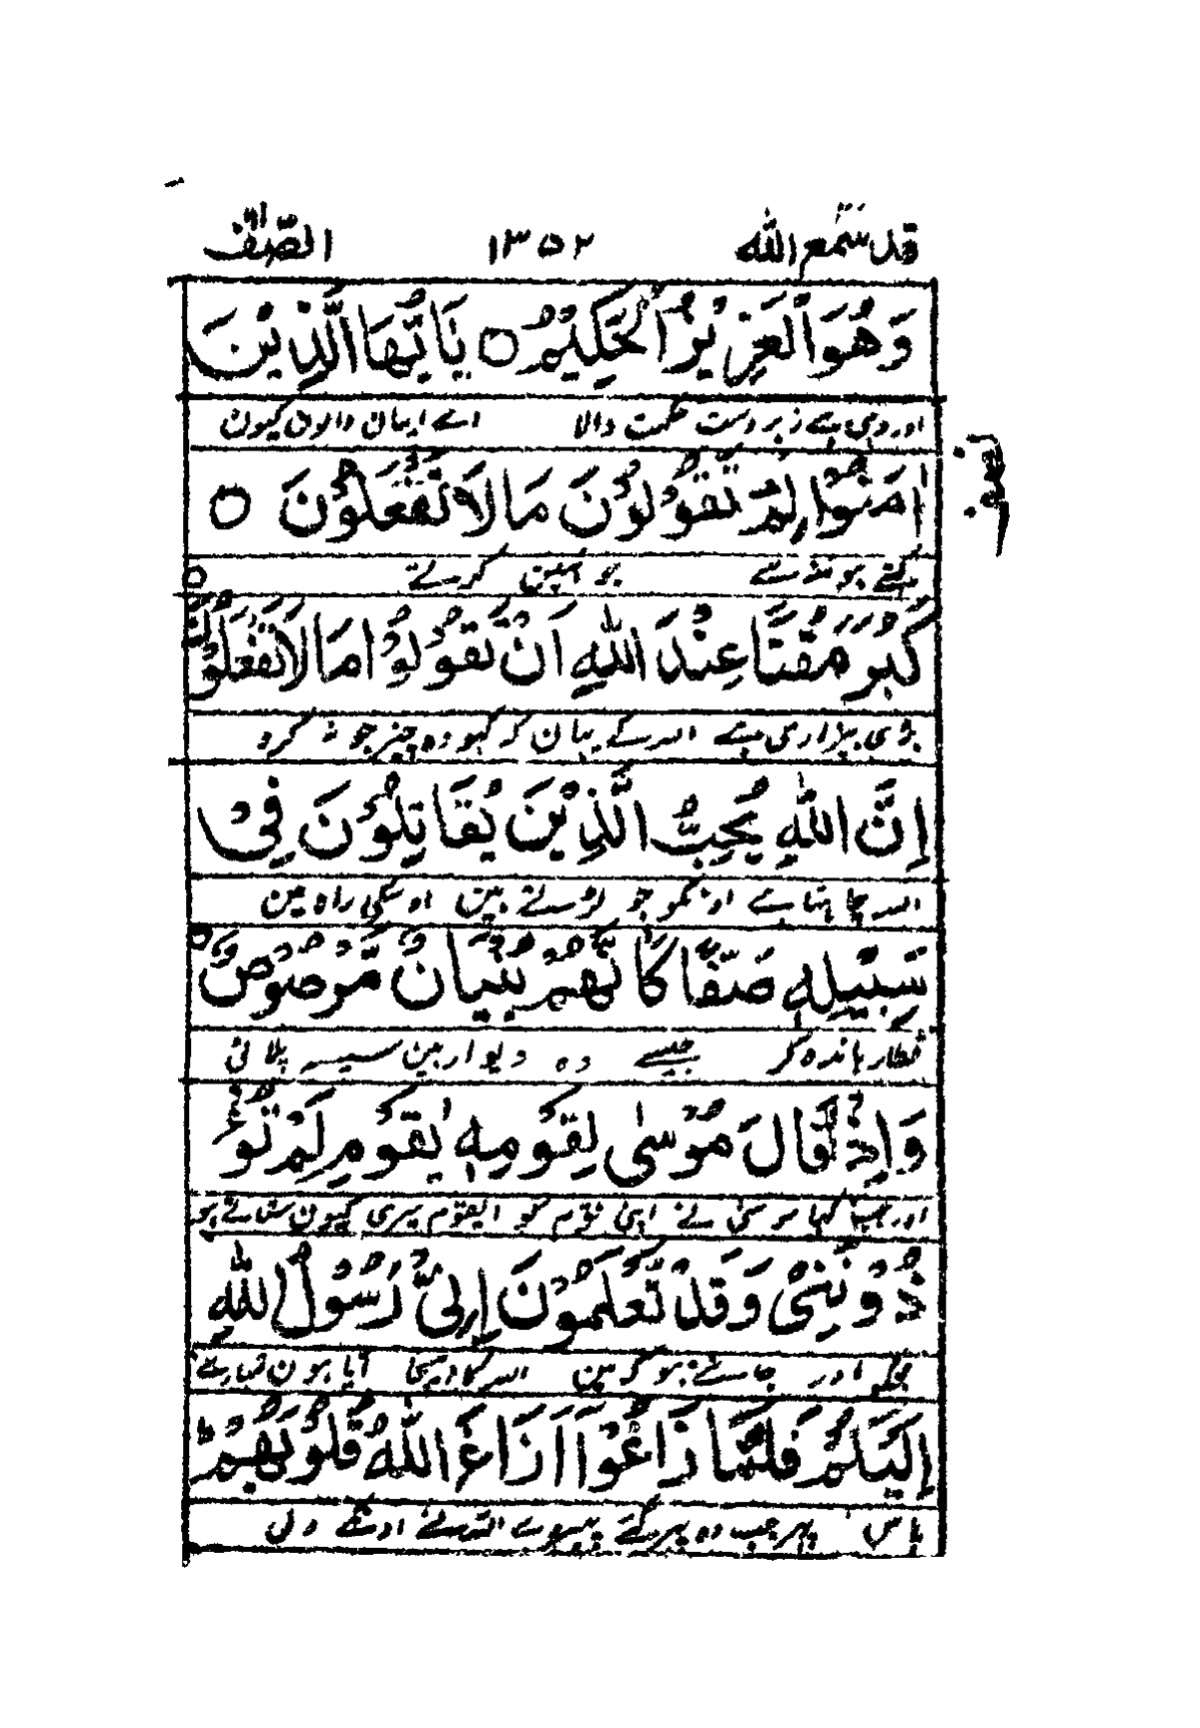 قد سمع الله ١٣٥٢ الصف
وَهُوَ الْعَزِيْزُ الْحَكِيْمُ ○ يٰاَيُّهَا الَّذِيْنَ
اور وہی ہے زبردست حکمت والا اے ایمان والون کیون
اٰمَنُوْا لِمَ تَقُوْلُوْنَ مَا لَا تَفْعَلُوْنَ ○
کہتے ہو منہ سے جو نہین کرتے ○
كَبُرَ مَقْتًا عِنْدَ اللّٰهِ اَنْ تَقُوْلُوْا مَا لَا تَفْعَلُوْنَ
بڑی بیزاری ہے اللہ کے یہان کہ کہو وہ چیز جو نہ کرو
اِنَّ اللّٰهَ يُحِبُّ الَّذِيْنَ يُقَاتِلُوْنَ فِيْ
اللہ چاہتا ہے اونکو جو لڑتے ہین اوسکی راہ مین
سَبِيْلِهٖ صَفًّا كَاَنَّهُمْ بُنْيَانٌ مَّرْصُوْصٌ ○
قطار باندہ کر جیسے وہ دیوار ہین سیسہ پلائی
وَاِذْ قَالَ مُوْسٰى لِقَوْمِهٖ يٰقَوْمِ لِمَ تُؤْ
اور جب کہا موسیٰ نے اپنی قوم کو ایقوم میری کیون ستاتے ہو
ذُوْنَنِيْ وَقَدْ تَّعْلَمُوْنَ اَنِّيْ رَسُوْلُ اللّٰهِ
مجکو اور جانتے ہو کہ مین اللہ کا بہیجا آیا ہون تمہارے
اِلَيْكُمْ فَلَمَّا زَاغُوْا اَزَاغَ اللّٰهُ قُلُوْبَهُمْ ط
پاس پہر جب وہ پہر گئے پہیر دے اللہ نے اونکے دل